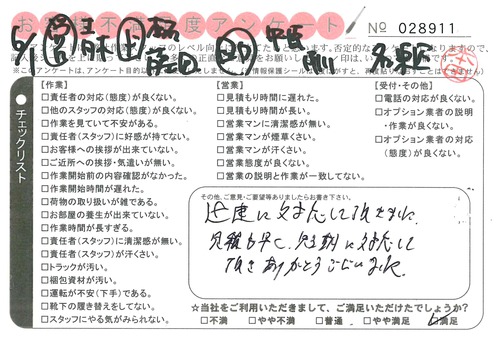 お客様不満足度アンケート
No 028911
チェックリスト
【作業】
□責任者の対応(態度)が良くない。
□他のスタッフの対応(態度)が良くない。
□作業を見ていて不安がある。
□責任者(スタッフ)に好感が持てない。
□お客様への挨拶が出来ていない。
□ご近所への挨拶・気遣いが無い。
□作業開始前の内容確認がなかった。
□作業開始時間が遅れた。
□荷物の取り扱いが雑である。
□お部屋の養生が出来ていない。
□作業時間が長すぎる。
□責任者(スタッフ)に清潔感が無い。
□責任者(スタッフ)が汗くさい。
□トラックが汚い。
□梱包資材が汚い。
□運転が不安(下手)である。
□靴下の履き替えをしてない。
□スタッフにやる気がみられない。
【営業】
□見積もり時間に遅れた。
□見積もり時間が長い。
□営業マンに清潔感が無い。
□営業マンが煙草くさい。
□営業マンが汗くさい。
□営業態度が良くない。
□営業の説明と作業が一致してない。
【受付・その他】
□電話の対応が良くない。
□オプション業者の説明
・作業が良くない。
□オプション業者の対応
(態度)が良くない。
その他、ご意見・ご要望等ありましたらお書き下さい。
迅速に対応して頂きました。
見積も早く、
に対応して
頂きありがとうございました。
☆当社をご利用いただきまして、ご満足いただけたでしょうか?
□不満 □やや不満 □普通 □やや満足 □満足